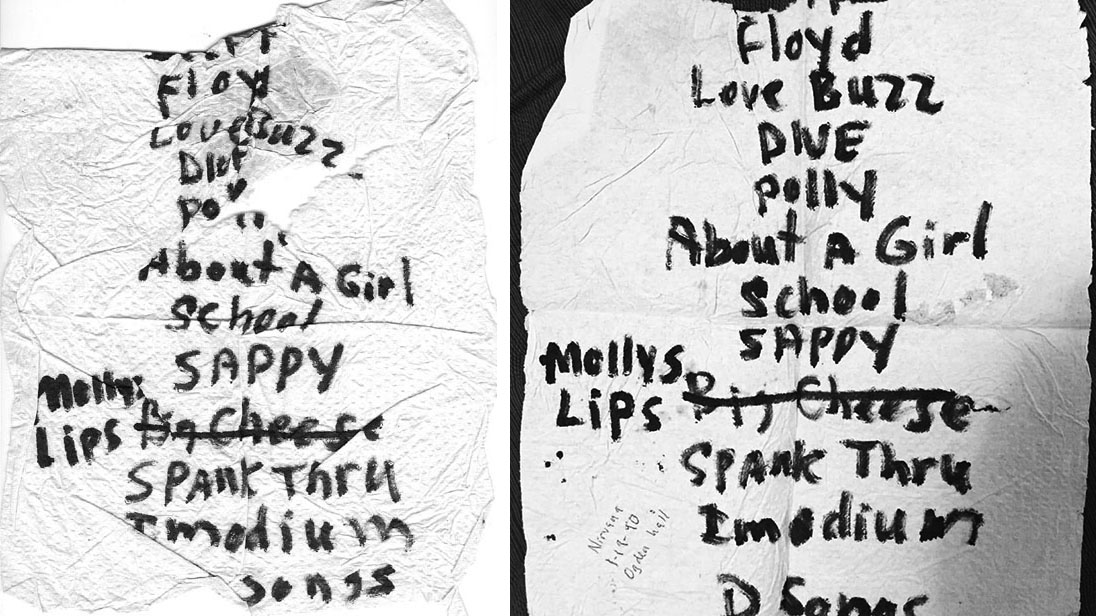 Floyd
Love Buzz
Dive
About A Girl
School
SAPPY
Mollys
Lips
Big Cheese
SPANK Thru
Imodium
songs
Floyd
Love Buzz
DIVE
Polly
About A Girl
School
SAPPY
Mollys
Lips
Big Cheese
SPANK Thru
Imodium
Nirvana
1-19-90
Ogden hall
D Songs